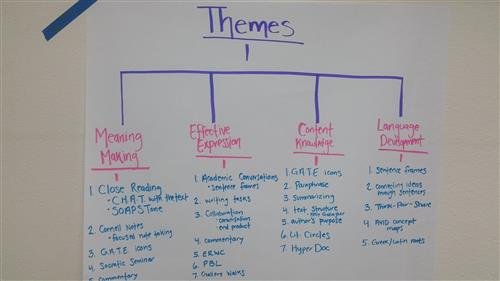 Themes
Meaning
Making
1. Close Reading
• C.H.A.T. with the text
• SOAPSTone
2. Cornell Notes
• focused note taking
3. G.A.T.E. icons
4. Socratic Seminar
5. Commentary
Effective
Expression
1. Academic Conversations
• sentence frames
2. writing tasks
3. Collaboration
• conversation
end product
4. Commentary
5. ERWC
6. PBL
7. Gallery Walks
Content
Knowledge
1. G.A.T.E icons
2. Paraphrase
3. Summarizing
4. text Structure
5. author's purpose
6. Lit. Circles
7. HyperDoc
Language
Development
1. Sentence frames
2. connecting ideas
through sentences
3. Think-Pair-Share
4. AVID concept
maps
5. Greek/Latin roots